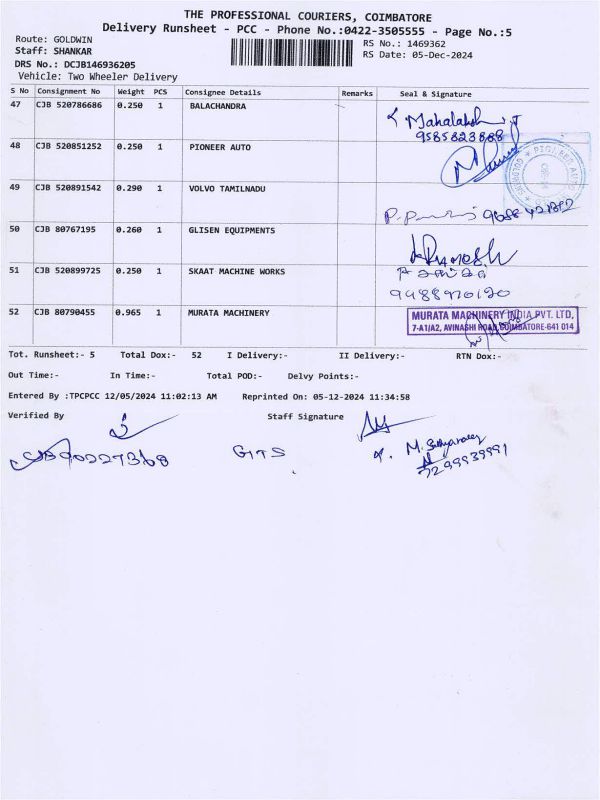 THE PROFESSIONAL COURIERS, COIMBATORE
Delivery Runsheet - PCC - Phone No.:0422-3505555 - Page No.:5
Route: GOLDWIN
RS No.: 1469362
Staff: SHANKAR
RS Date: 05-Dec-2024
DRS No.: DCJB146936205
Vehicle: Two Wheeler Delivery
S No Consignment No Weight PCS Consignee Details Remarks Seal & Signature
47 CJB 520786686 0.250 1 BALACHANDRA
9585823888
48 CJB 520851252 0.250 1 PIONEER AUTO
49 CJB 520891542 0.290 1 VOLVO TAMILNADU
50 CJB 80767195 0.260 1 GLISEN EQUIPMENTS
51 CJB 520899725 0.250 1 SKAAT MACHINE WORKS
9488970120
52 CJB 80790455 0.965 1 MURATA MACHINERY
MURATA MACHINERY INDIA PVT. LTD,
7-A1/A2, AVINASHI ROAD, COIMBATORE-641 014
Tot. Runsheet:- 5 Total Dox:- 52 I Delivery:- II Delivery:- RTN Dox:-
Out Time:- In Time:- Total POD:- Delvy Points:-
Entered By :TPCPCC 12/05/2024 11:02:13 AM Reprinted On: 05-12-2024 11:34:58
Verified By Staff Signature
CJB90227368 GITS
7299939991